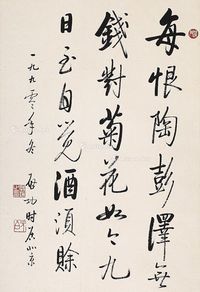 每恨陶彭澤無
錢對菊花如今九
日至自覺酒須賒
一九九零年冬
啟功時居北京